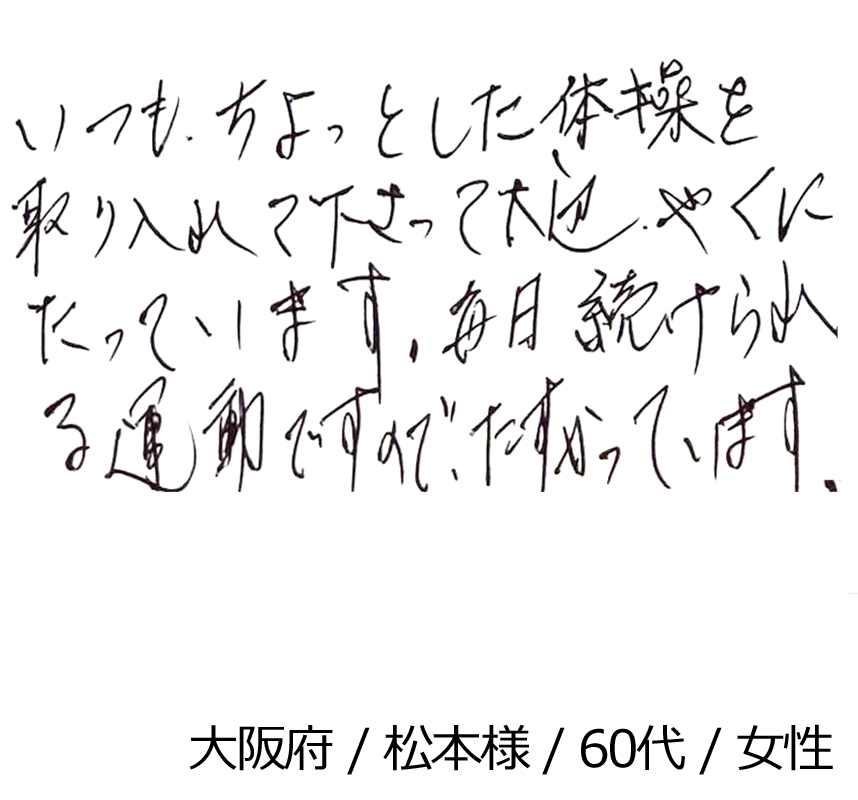 いつも、ちょっとした体操を
取り入れて下さって大辺、やくに
たっています。毎日続けられ
る運動ですので、たすかっています。
大阪府 / 松本様 / 60代 / 女性